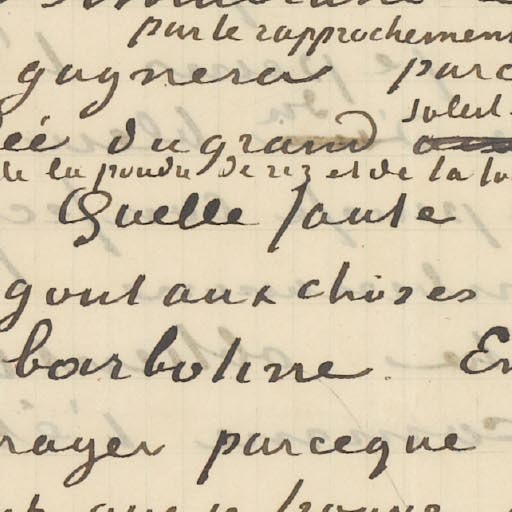 par le rapprochement
gagnera parc
soleil
ée du grand
de la poudre de riz et de la
Quelle faute
gout aux choses
barbotine. En
rayer parceque